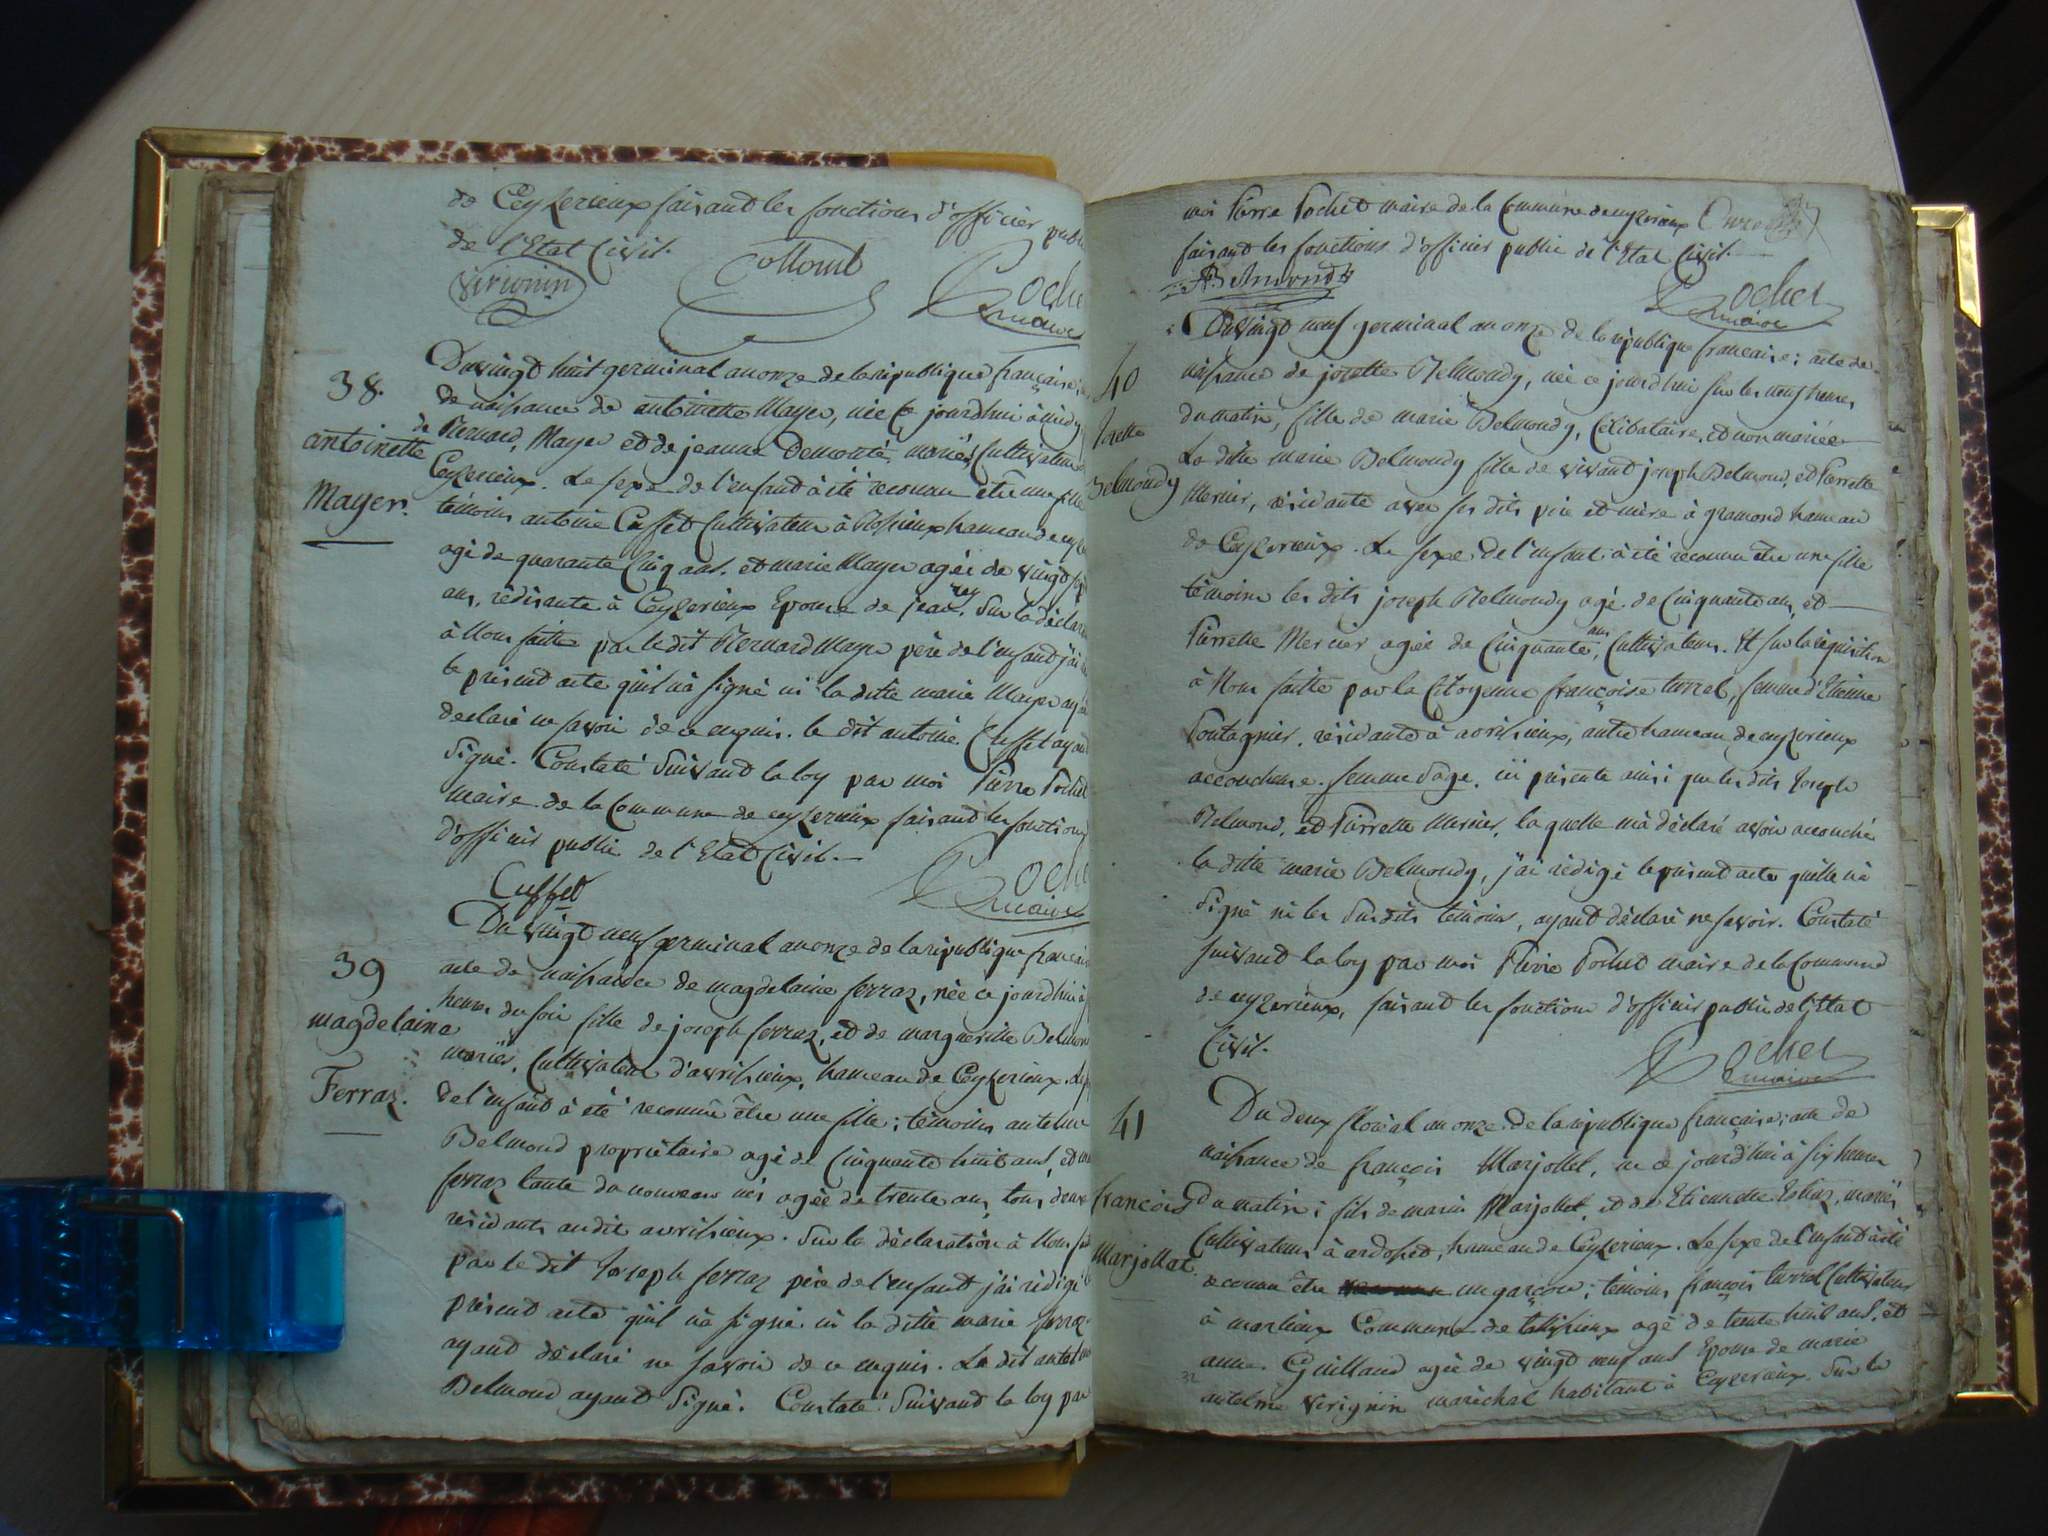 de Ceyzerieux faisant les fonctions d'officier public
de l'Etat Civil.
Virignin Collomb Pochet
maire
38.
antoinette
Mayer.
Du vingt huit germinal an onze de la république française;
de naissance de antoinette Mayer, née ce jourd'hui à midy
de Bernard Mayer et de jeanne Demonté, mariés Cultivateurs
Ceyzerieux. Le sexe de l'enfant à été reconnu être une fille
témoins antoine Cuffet Cultivateur à hameau de
agé de quarante Cinq ans. et marie Mayer agée de vingt
ans, résidante à Ceyzerieux Epouse de jean rey. Sur la
à Nous faitte par le dit Bernard Mayer père de l'enfant j'ai
le présent acte qu'il n'à signé ni la ditte marie Mayer
déclaré ne savoir de ce enquis. le dit antoine Cuffet ayant
signé. Constaté suivant la loy par moi Pierre Pochet
maire de la Commune de ceyzerieux faisant les fonctions
d'officier public de l'Etat Civil.
Cuffet Pochet
maire
39
magdelaine
Ferraz.
Du vingt neuf germinal an onze de la république française
acte de naissance de magdelaine ferraz, née ce jourd'hui à
heures du soir fille de joseph ferraz, et de margueritte Belmond
mariés, Cultivateurs d'avrissieux, hameau de Ceyzerieux. Le
de l'enfant à été reconnû être une fille; témoins antelme
Belmond propriétaire agé de Cinquante huit ans, et
ferraz tante du nouveau né agée de trente ans, tous deux
résidants audit avrissieux. Sur la déclaration à Nous
par le dit Joseph ferraz père de l'enfant j'ai rédigé
présent acte qu'il n'à signé ni la ditte marie ferraz
ayant déclaré ne savoir de ce enquis. Le dit antelme
Belmond ayant signé. Constaté suivant la loy par
moi Pierre Pochet maire de la Commune de ceyzerieux
faisant les fonctions d'officier public de l'Etat Civil.
ABelmondt Pochet
maire
40
Josette
Belmondy
Du vingt neuf germinal an onze de la république française; acte de
naissance de josette Belmondy, née ce jourd'hui sur les neuf heures
du matin, fille de marie Belmondy, Célibataire, et non mariée
La ditte marie Belmondy fille de vivant joseph Belmond, et Pierrette
Mercier, résidante avec ses dits père et mère à gramond hameau
de Ceyzerieux. Le sexe de l'enfant à été reconnu être une fille
témoins les dits joseph Belmondy agé de Cinquante ans, et
Pierrette Mercier agée de Cinquante ans, Cultivateurs. Et sur la réquisition
à Nous faitte par la Citoyenne françoise turrel, femme d'Etienne
Pontagnier, résidante à avrissieux, autre hameau de ceyzerieux
accoucheuse femme sage, ici présente ainsi que les dits Joseph
Belmond, et Pierrette Mercier, la quelle m'à déclaré avoir accouché
la ditte marie Belmondy, j'ai rédigé le présent acte qu'elle n'à
signé ni les susdits témoins, ayant déclaré ne savoir. Constaté
suivant la loy par moi Pierre Pochet maire de la Commune
de ceyzerieux, faisant les fonctions d'officier public de l'Etat
Civil.
Pochet
maire
41
françois
Marjollat
Du deux floréal an onze de la république française; acte de
naissance de françois Marjollet, né ce jourd'hui à six heures
du matin; fils de marin Marjollet, et de Etiennette mariés
Cultivateurs à ardosset, hameau de Ceyzerieux. Le sexe de l'enfant à été
reconnu être un garçon; témoins françois turrel Cultivateur
à marlieux Commune de talissieux agé de trente huit ans, et
anne Guilland agée de vingt neuf ans Epouse de marie
antelme Virignin maréchal habitant à Ceyzerieux. Sur la
32